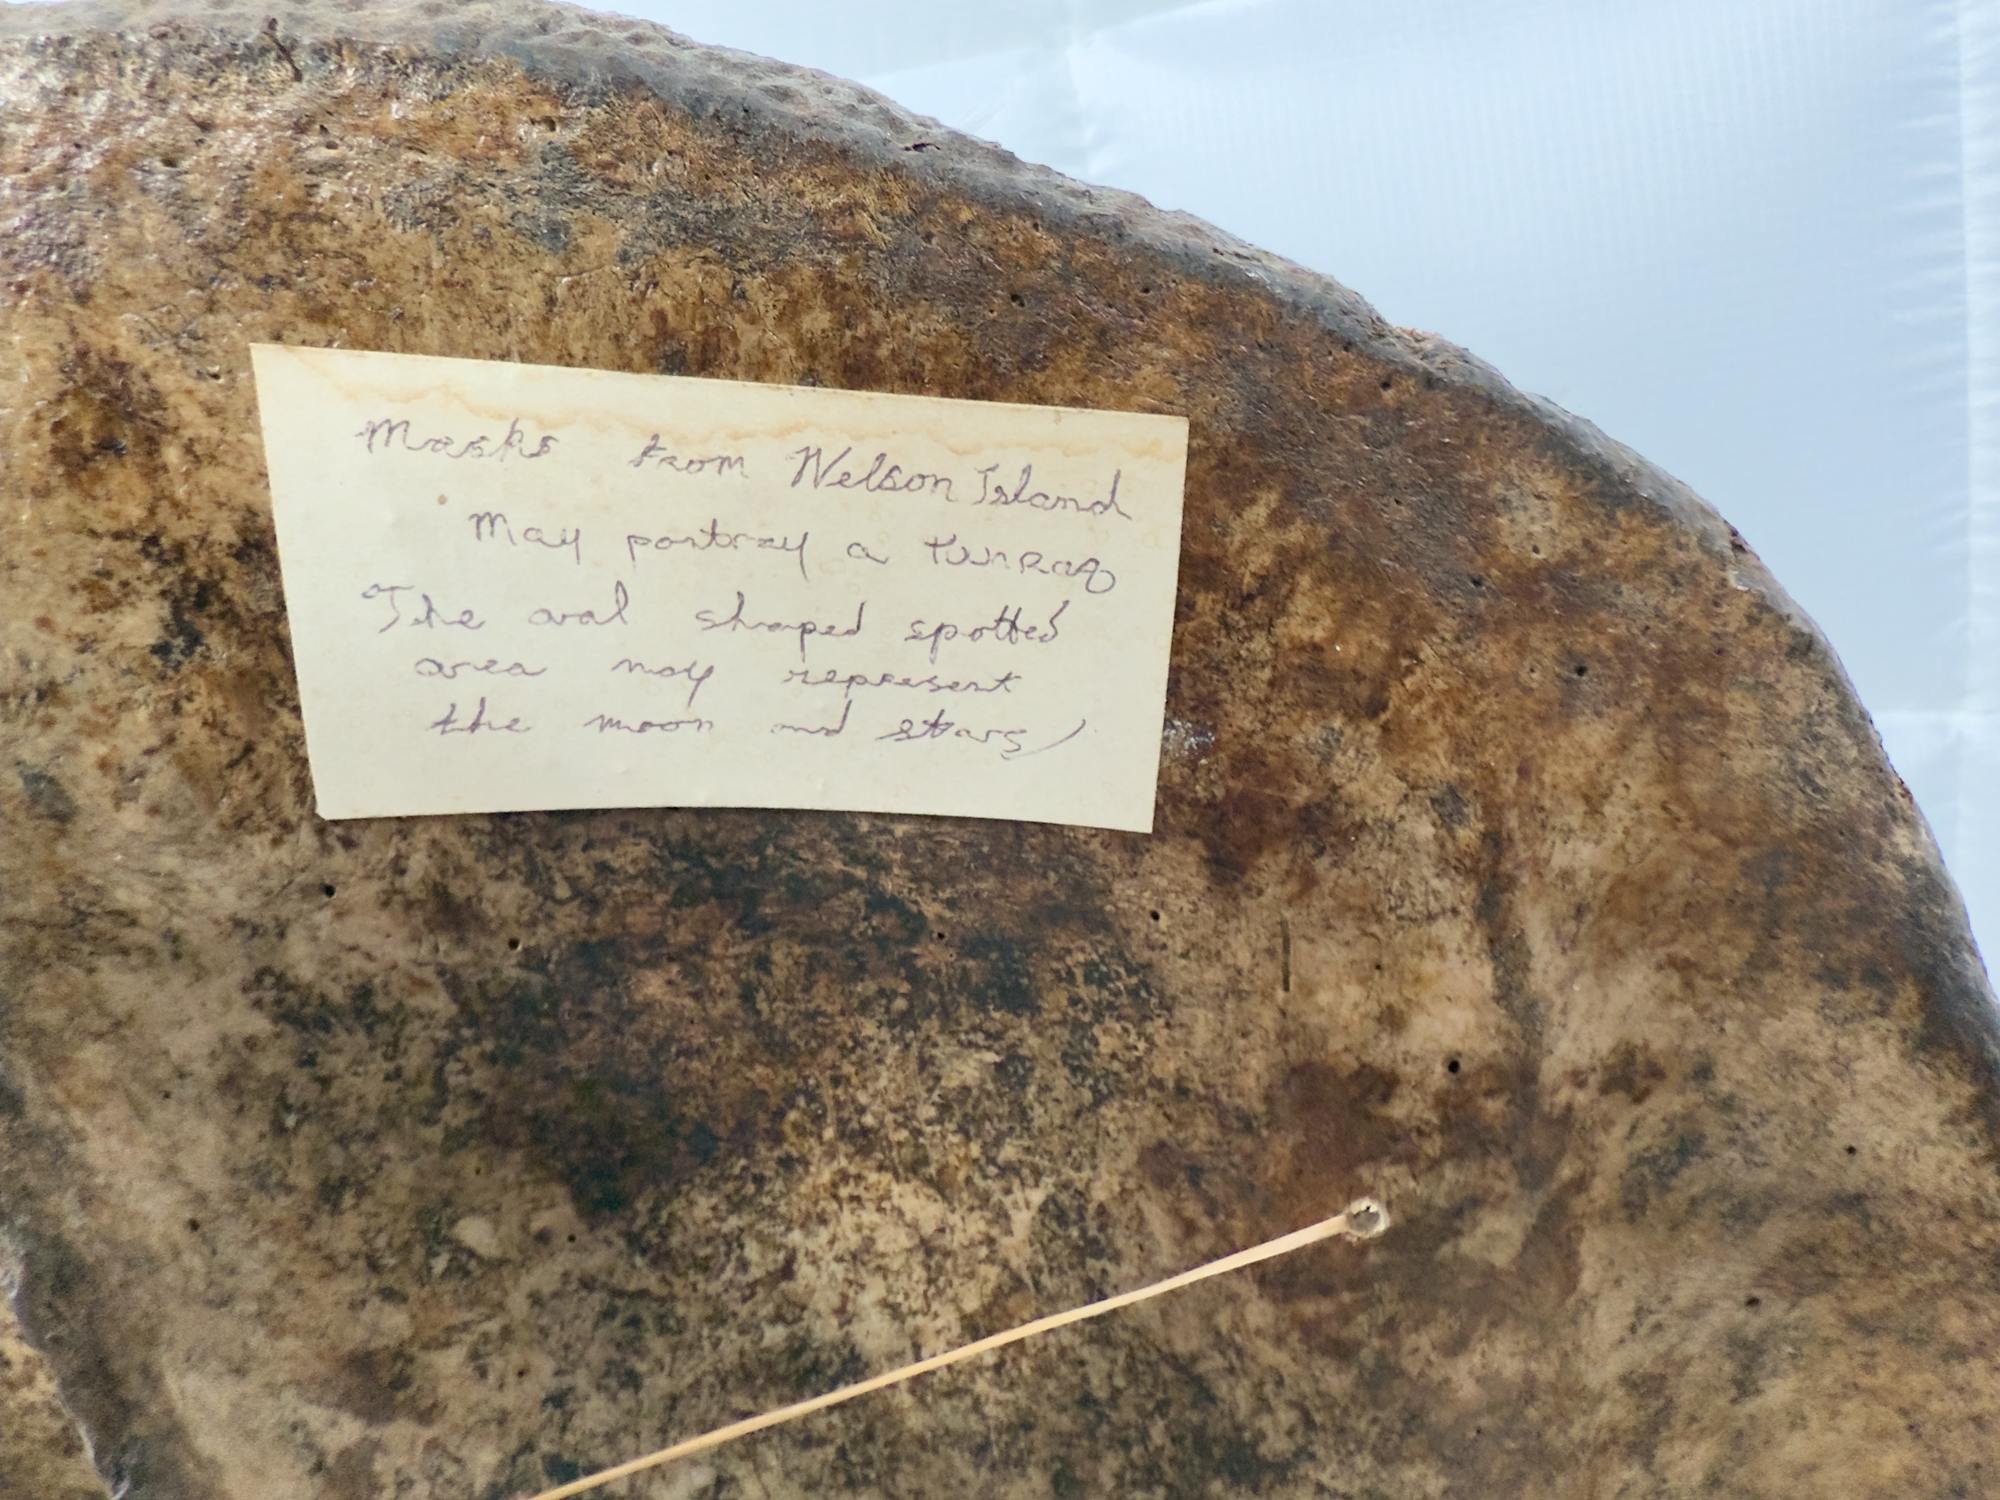 Masks from Nelson Island
May portray a tunraq
The oval shaped spotted
area may represent
the moon and stars)